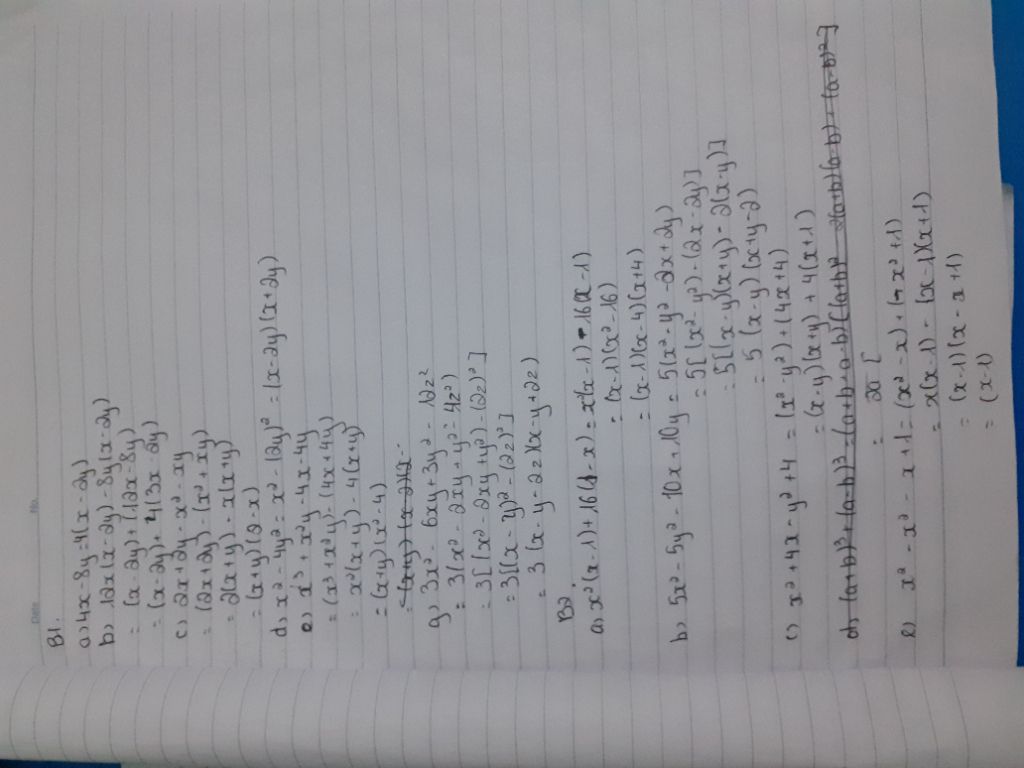 Date No.
B1.
a) 4x - 8y = 4(x - 2y)
b) 12x(x - 2y) - 8y(x - 2y)
= (x - 2y) + (12x - 8y)
= (x - 2y) + 4(3x - 2y)
c) 2x + 2y - x² - xy
= (2x + 2y) - (x² + xy)
= 2(x + y) - x(x + y)
= (x + y)(2 - x)
d) x² - 4y² = x² - (2y)² = (x - 2y)(x + 2y)
e) x³ + x²y - 4x - 4y
= (x³ + x²y) - (4x + 4y)
= x²(x + y) - 4(x + y)
= (x + y)(x² - 4)
= (x + y) + (x - 2)(2
g) 3x² - 6xy + 3y² - 12z²
= 3(x² - 2xy + y² - 4z²)
= 3[(x² - 2xy + y²) - (2z)²]
= 3[(x - y)² - (2z)²]
= 3(x - y - 2z)(x - y + 2z)
B2
a) x²(x - 1) + 16(1 - x) = x²(x - 1) - 16(x - 1)
= (x - 1)(x² - 16)
= (x - 1)(x - 4)(x + 4)
b) 5x² - 5y² - 10x + 10y = 5(x² - y² - 2x + 2y)
= 5[(x² - y²) - (2x - 2y)]
= 5[(x - y)(x + y) - 2(x - y)]
= 5(x - y)(x + y - 2)
c) x² + 4x - y² + 4 = (x² - y²) + (4x + 4)
= (x - y)(x + y) + 4(x + 1)
d) (a + b)³ + (a - b)³ = (a + b + a - b)[(a + b)² - (a + b)(a - b) + (a - b)²]
= 2x [
e) x² - x² - x + 1 = (x² - x) + (-x² + 1)
= x(x - 1) - (x - 1)(x + 1)
= (x - 1)(x - x + 1)
= (x - 1)